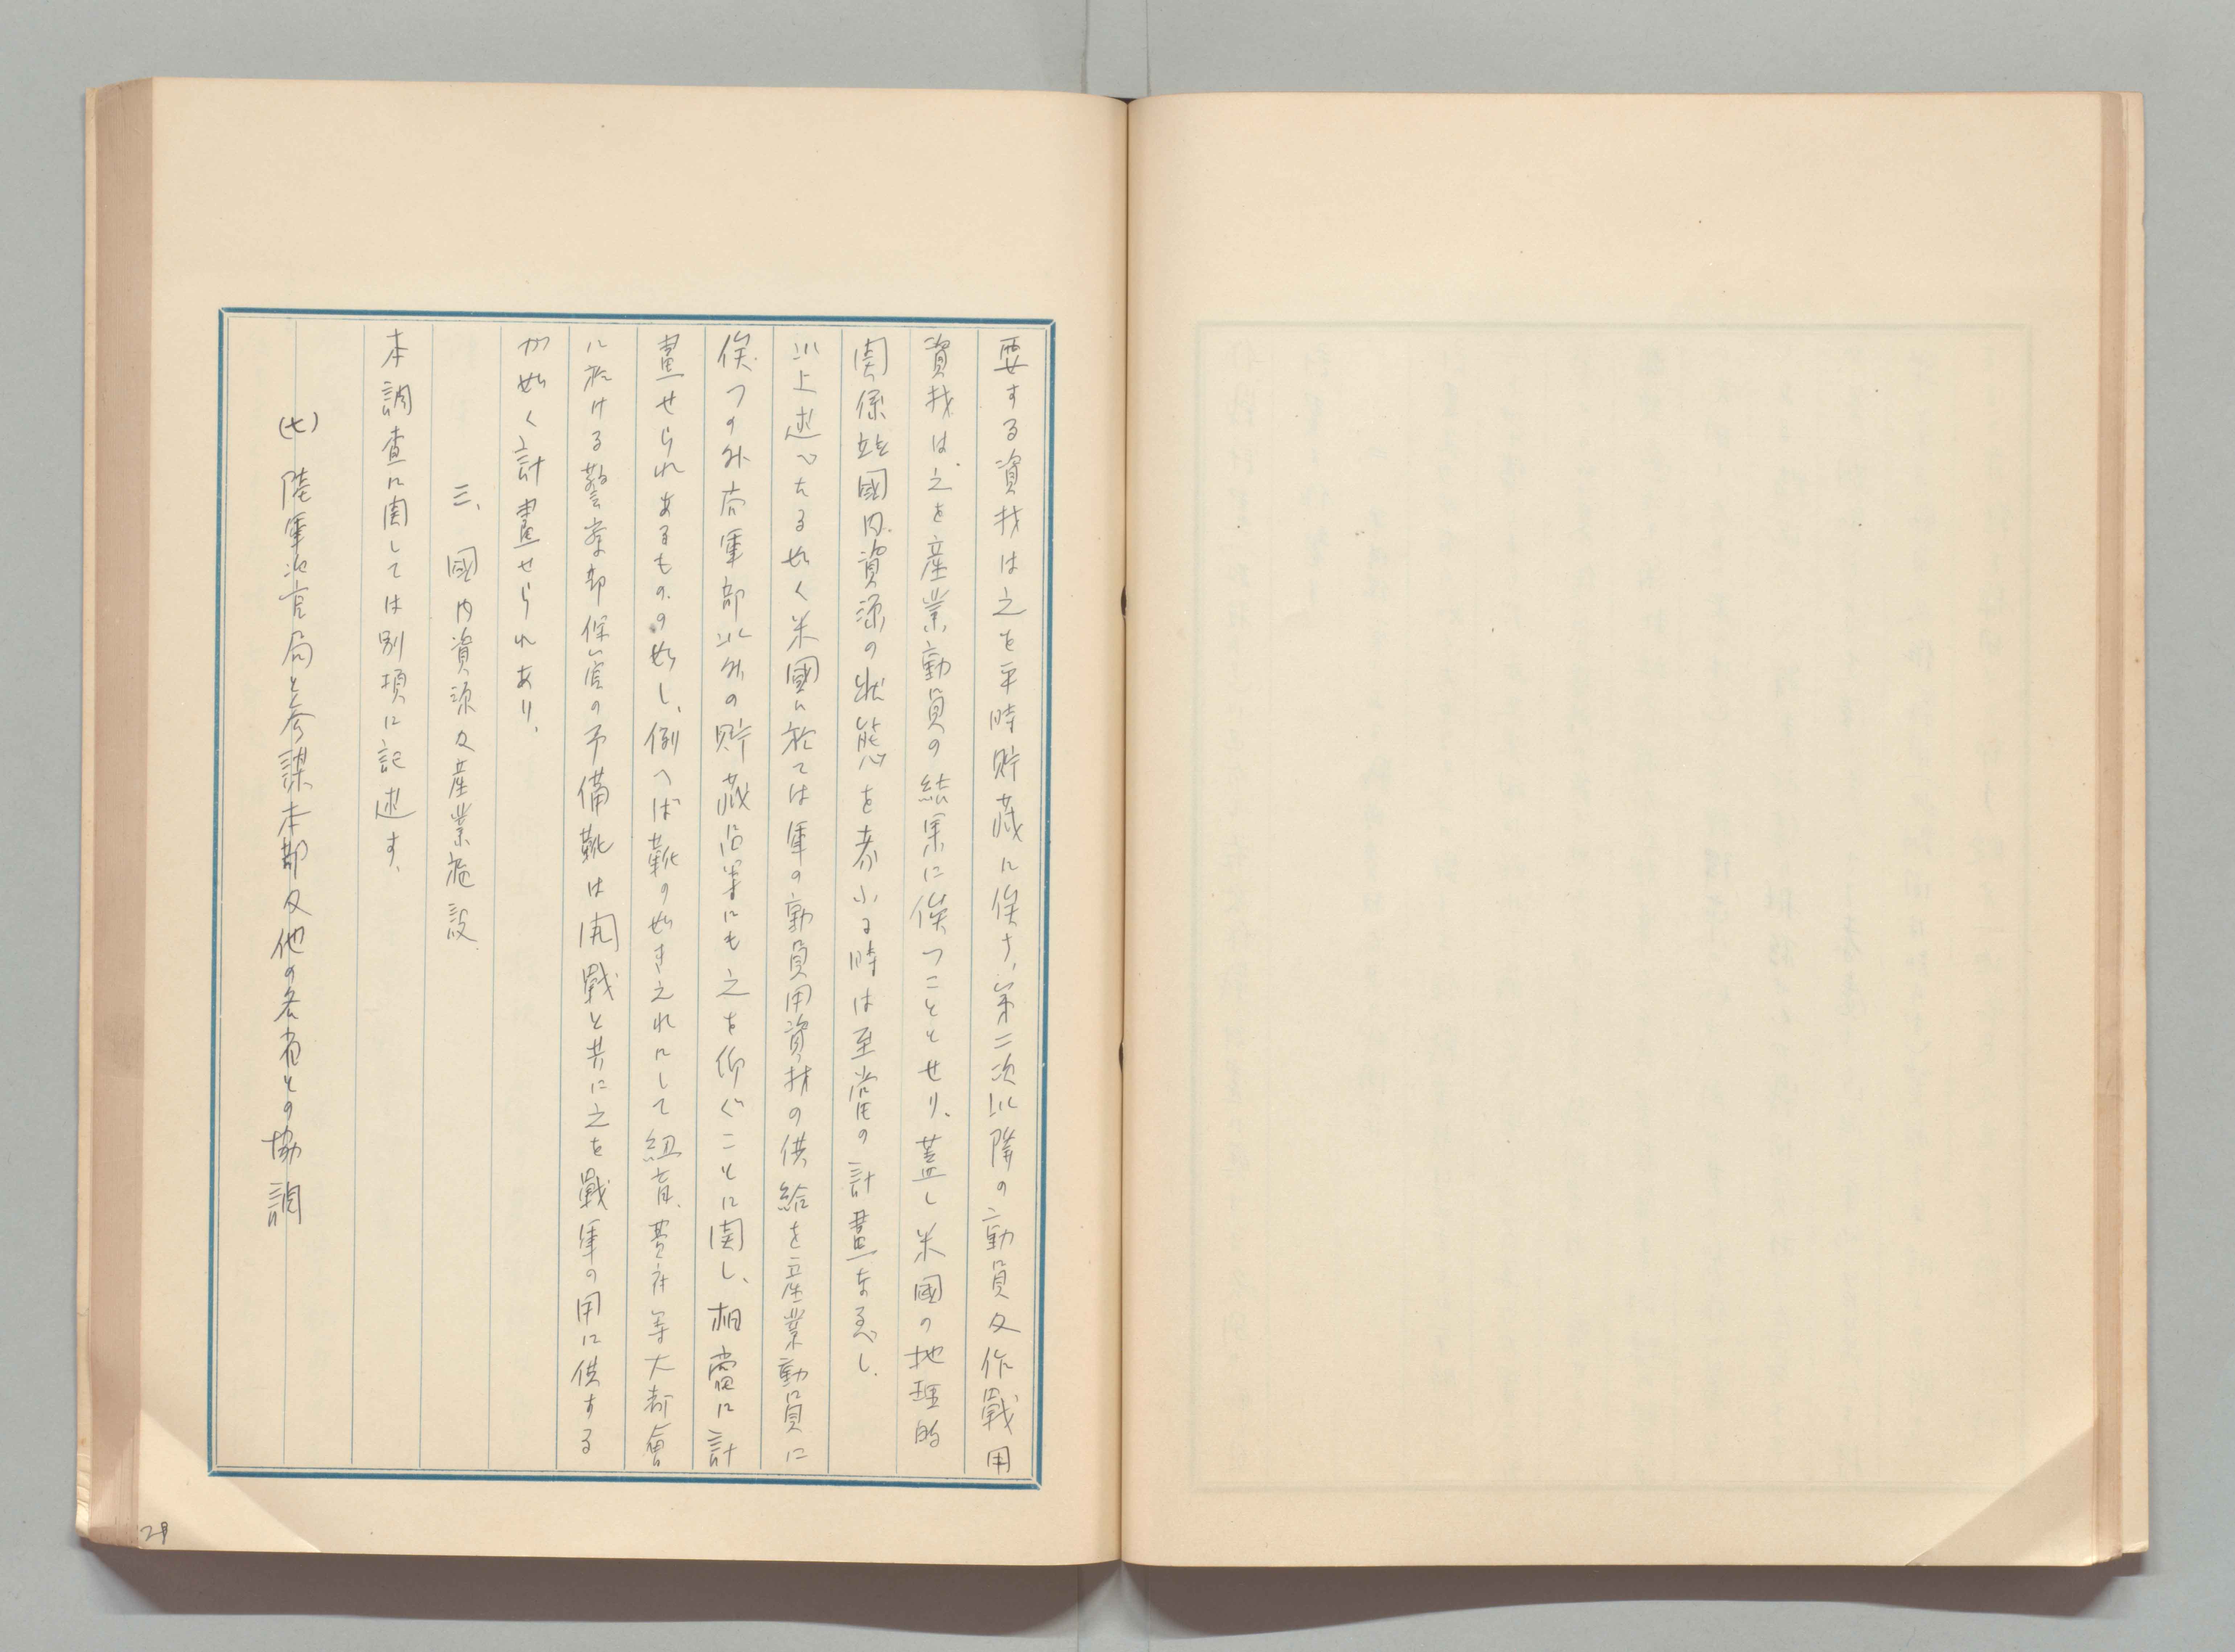 要する資材は之を平時貯蔵に俟ち、第二次以降の動員及作戰用
資材は之を産業動員の結果に俟つこととせり、蓋し米國の地理的
関係並國内資源の狀態を考ふる時は至當の計畫なるべし、
以上述べたる如く米國に於ては軍の動員用資材の供給を産業動員に
俟つの外尚軍部以外の貯蔵品等にも之を仰ぐことに関し、相當に計
畫せられあるものの如し、例へば靴の如きこれにして紐育、費府等大都會
に於ける警察部保管の予備靴は開戰と共に之を戰軍の用に供する
が如く計畫せられあり、
三、國内資源及産業施設
本調査に関しては別項に記述す、
(七) 陸軍次官局と参謀本部及他の各省との協調